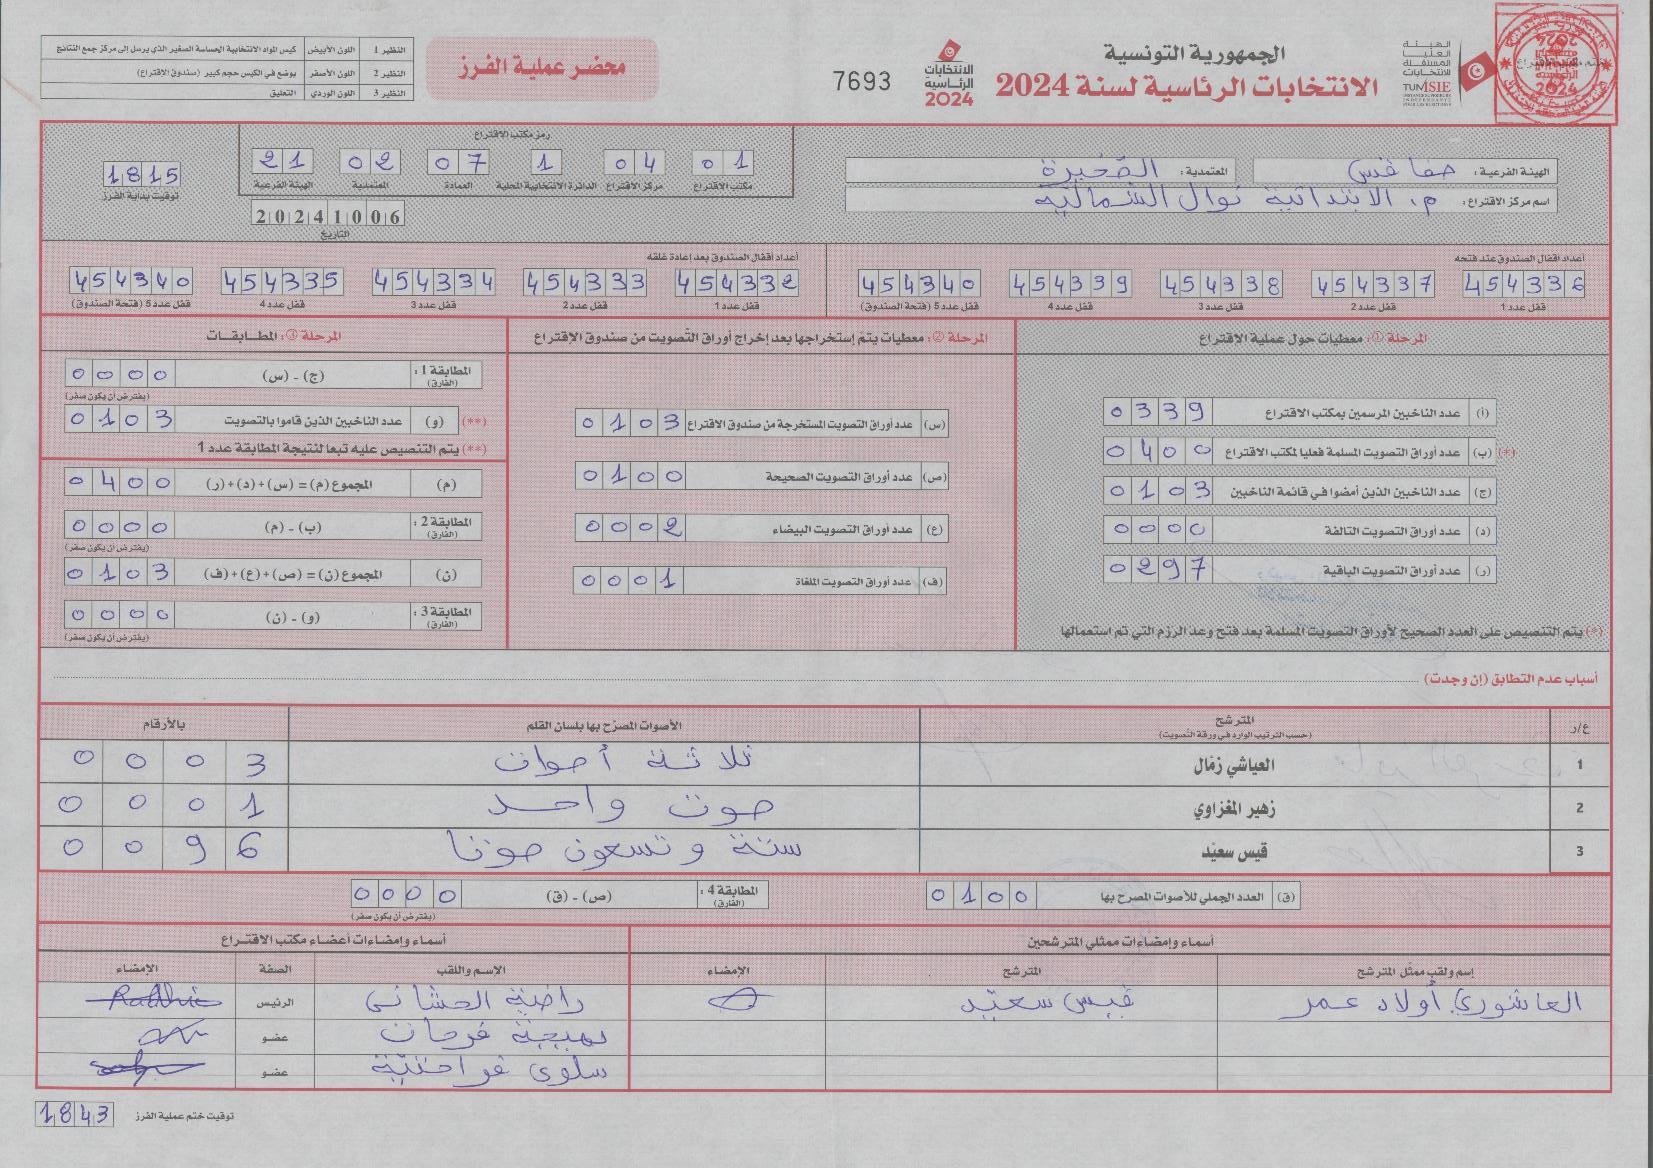 الجمهورية التونسية
الانتخابات الرئاسية لسنة 2024
الهيئة
العليا
المستقلة
للانتخابات
TUNISIE
ISIE
2024
الانتخابات
الرئاسية
2024
7693
محضر عملية الفرز
النظير 1 اللون الأبيض كيس المواد الانتخابية الحساسة الصغير الذي يرسل إلى مركز جمع النتائج
النظير 2 اللون الأصفر يوضع في الكيس حجم كبير (صندوق الاقتراع)
النظير 3 اللون الوردي التعليق
الهيئة الفرعية : صفاقس المعتمدية : الصّخيرة
اسم مركز الاقتراع : م. الابتدائية نوال الشمالية
رمز مكتب الاقتراع
01 04 1 07 02 21
مكتب الاقتراع مركز الاقتراع الدائرة الانتخابية المحلية العمادة المعتمدية الهيئة الفرعية
20241006
التاريخ
1815
توقيت بداية الفرز
أعداد أقفال الصندوق عند فتحه
454336 454337 454338 454339 454340
قفل عدد 1 قفل عدد 2 قفل عدد 3 قفل عدد 4 قفل عدد 5 (فتحة الصندوق)
أعداد أقفال الصندوق بعد إعادة غلقه
454332 454333 454334 454335 454340
قفل عدد 1 قفل عدد 2 قفل عدد 3 قفل عدد 4 قفل عدد 5 (فتحة الصندوق)
المرحلة ①: معطيات حول عملية الاقتراع
(أ) عدد الناخبين المرسمين بمكتب الاقتراع 0339
(*) (ب) عدد أوراق التصويت المسلمة فعليا لمكتب الاقتراع 0400
(ج) عدد الناخبين الذين أمضوا في قائمة الناخبين 0103
(د) عدد أوراق التصويت التالفة 0000
(ر) عدد أوراق التصويت الباقية 0297
(*) يتم التنصيص على العدد الصحيح لأوراق التصويت المسلمة بعد فتح وعد الرزم التي تم استعمالها
المرحلة ②: معطيات يتمّ إستخراجها بعد إخراج أوراق التّصويت من صندوق الإقتراع
(س) عدد أوراق التصويت المستخرجة من صندوق الاقتراع 0103
(ص) عدد أوراق التصويت الصحيحة 0100
(ع) عدد أوراق التصويت البيضاء 0002
(ف) عدد أوراق التصويت الملغاة 0001
المرحلة ③: المطابقات
المطابقة 1 : (الفارق) (ج) - (س) 0000
(يفترض أن يكون صفر)
(**) (و) عدد الناخبين الذين قاموا بالتصويت 0103
(**) يتم التنصيص عليه تبعا لنتيجة المطابقة عدد 1
(م) المجموع (م) = (س) + (د) + (ر) 0400
المطابقة 2 : (الفارق) (ب) - (م) 0000
(يفترض أن يكون صفر)
(ن) المجموع (ن) = (ص) + (ع) + (ف) 0103
المطابقة 3 : (الفارق) (و) - (ن) 0000
(يفترض أن يكون صفر)
أسباب عدم التطابق (إن وجدت)
ع/ر المترشح الأصوات المصرّح بها بلسان القلم بالأرقام
(حسب الترتيب الوارد في ورقة التصويت)
1 العياشي زمّال ثلاثة أصوات 0003
2 زهير المغزاوي صوت واحد 0001
3 قيس سعيّد ستة وتسعون صوتا 0096
(ق) العدد الجملي للأصوات المصرح بها 0100 المطابقة 4 : (الفارق) (ص) - (ق) 0000
(يفترض أن يكون صفر)
أسماء وإمضاءات ممثلي المترشحين
إسم ولقب ممثّل المترشح المترشح الإمضاء
العاشوري أولاد عمر قيس سعيّد
أسماء وإمضاءات أعضاء مكتب الاقتراع
الاسم واللقب الصفة الإمضاء
راضية الحشاني الرئيس Radhia
بهيجة فرحات عضو
سلوى فراحتيّة عضو
توقيت ختم عملية الفرز 1843